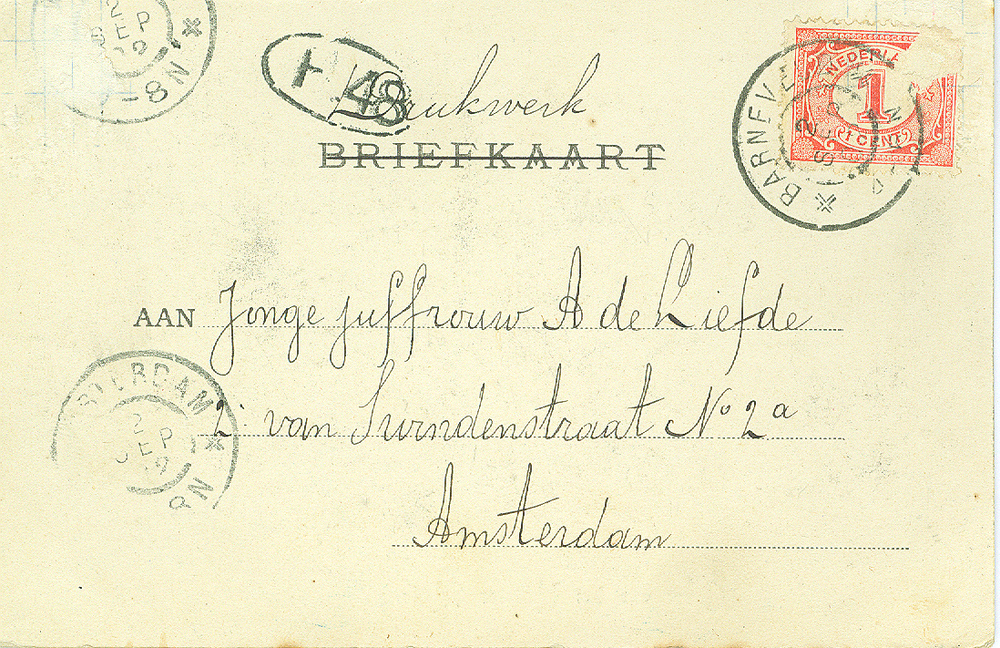 2
SEP
-8N
H 48
Drukwerk
BRIEFKAART
NEDERLAND
1
1 CENT
BARNEVELD
2 SEP
AAN Jonge juffrouw A de Liefde
2e van Swindenstraat No 2a
Amsterdam
AMSTERDAM
2
SEP
8N